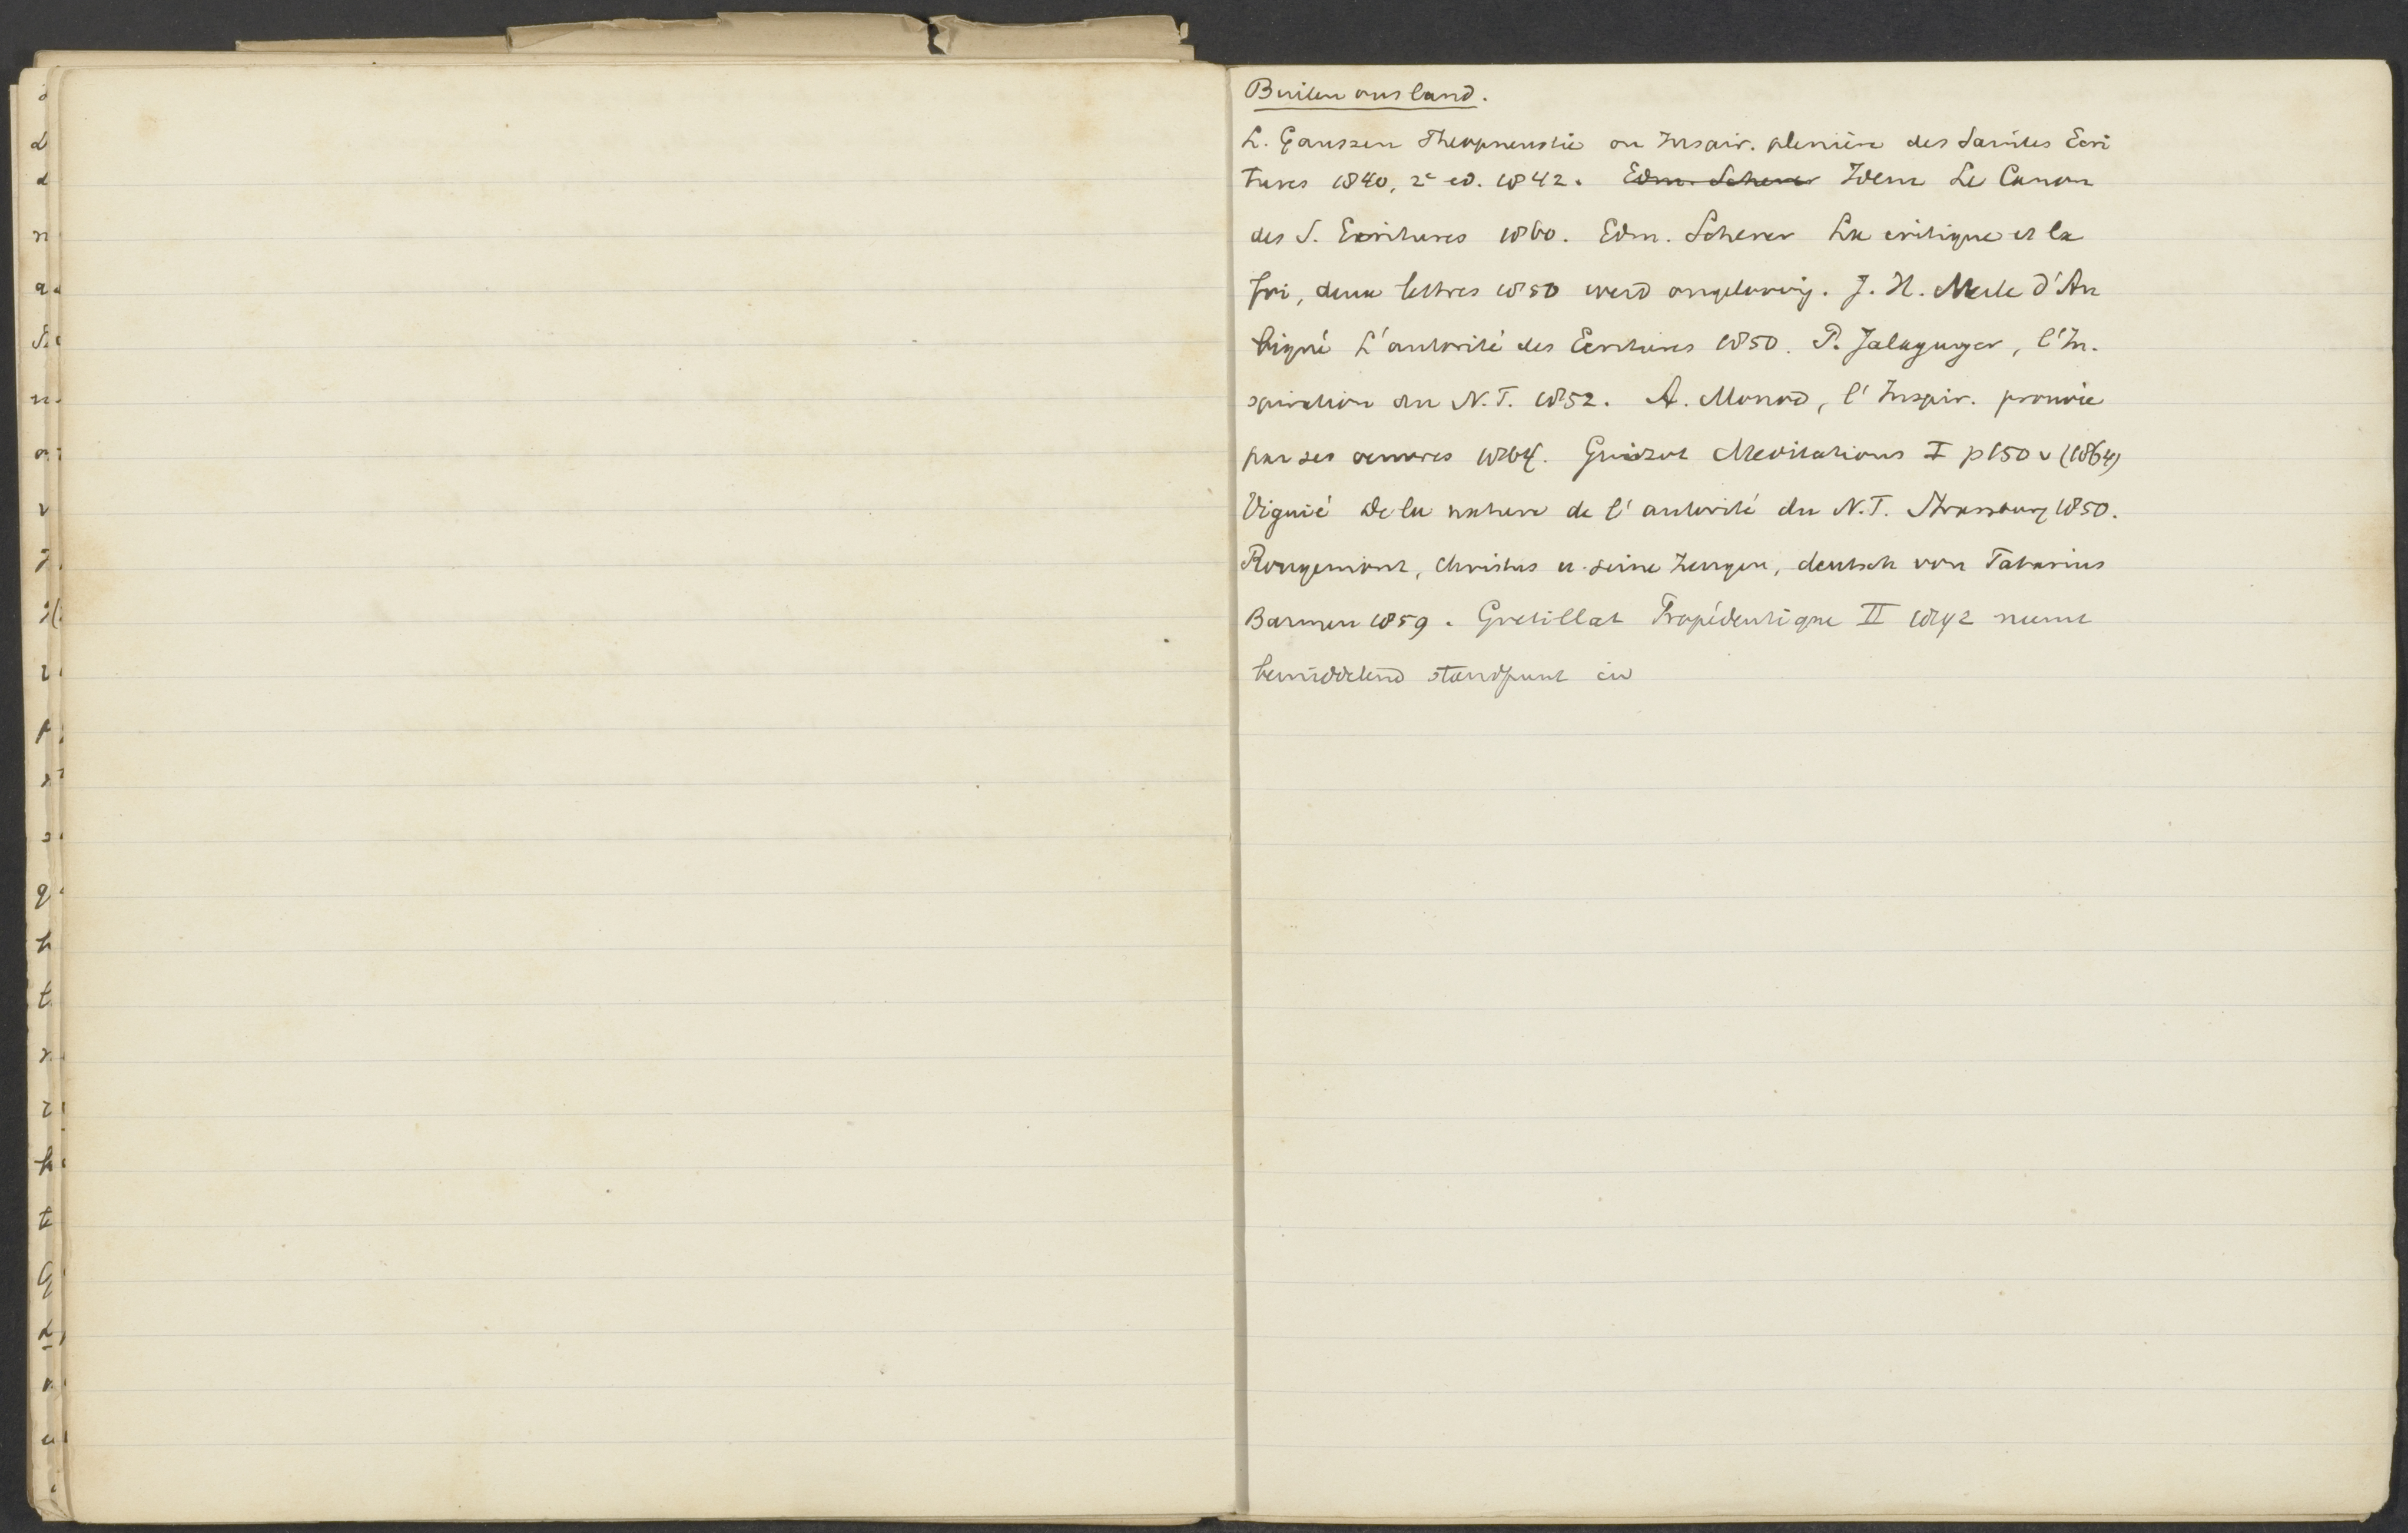 Buiten ons land.
L. Gaussen Theopneustie ou Inspir. plenière des Saintes Ecri
tures 1840, 2e ed. 1842. Edm. Scherer Idem Le Canon
des S. Ecritures 1860. Edm. Scherer La critique et la
foi, deux lettres 1850 werd ongeloovig. J. H. Merle d'Au
bigné L'autorité des Ecritures 1850. P. Jalaguyer, l'In.
spiration du N.T. 1852. A. Monod, l'Inspir. prouvée
par ses oeuvres 1864. Guizot Meditations I p 150 v (1864)
Viguié De la nature de l'autorité du N.T. Strassburg 1850.
Rougemont, Christus u. seine Zeugen, deutsch von Fabarius
Barmen 1859. Gretillat Propédeutique II 1892 neemt
bemiddelend standpunt in